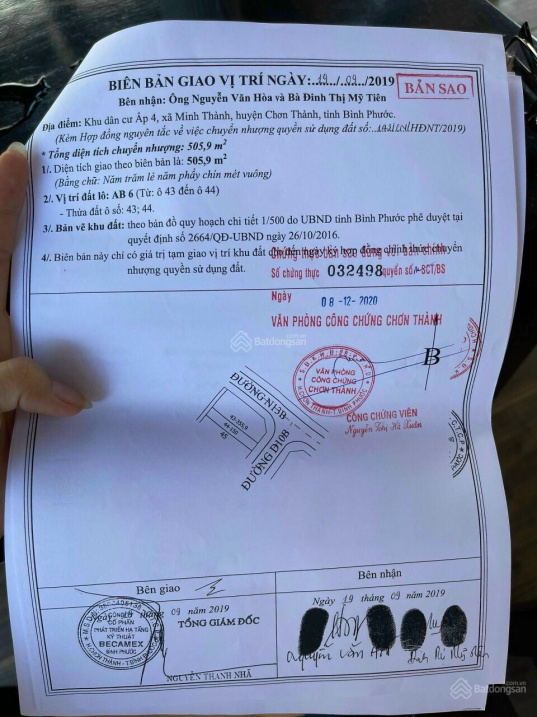 BIÊN BẢN GIAO VỊ TRÍ NGÀY:..19../..09../2019
BẢN SAO
Bên nhận: Ông Nguyễn Văn Hòa và Bà Đinh Thị Mỹ Tiên
Địa điểm: Khu dân cư Ấp 4, xã Minh Thành, huyện Chơn Thành, tỉnh Bình Phước.
(Kèm Hợp đồng nguyên tắc về việc chuyển nhượng quyền sử dụng đất số: /HĐNT/2019)
* Tổng diện tích chuyển nhượng: 505,9 m²
1/. Diện tích giao theo biên bản là: 505,9 m²
(Bằng chữ: Năm trăm lẻ năm phẩy chín mét vuông)
2/. Vị trí đất lô: AB 6 (Từ: ô 43 đến ô 44)
- Thửa đất ô số: 43; 44.
3/. Bản vẽ khu đất: theo bản đồ quy hoạch chi tiết 1/500 do UBND tỉnh Bình Phước phê duyệt tại
quyết định số 2664/QĐ-UBND ngày 26/10/2016.
4/. Biên bản này chỉ có giá trị tạm giao vị trí khu đất cho đến ngày ký hợp đồng chính thức chuyển
nhượng quyền sử dụng đất.
Chứng thực bản sao đúng với bản chính
Số chứng thực 032498 quyển số: SCT/BS
Ngày 08-12-2020
VĂN PHÒNG CÔNG CHỨNG CHƠN THÀNH
B
VĂN PHÒNG
CÔNG CHỨNG
CHƠN THÀNH
H.CHƠN THÀNH-T.BÌNH PHƯỚC
CÔNG CHỨNG VIÊN
Nguyễn Thị Hà Xuân
Batdongsan
ĐƯỜNG N13B
ĐƯỜNG D10B
43-355,9
44-150
45
Bên giao
Bên nhận
Ngày 19 tháng 09 năm 2019
Ngày 19 tháng 09 năm 2019
TỔNG GIÁM ĐỐC
CÔNG TY
CỔ PHẦN
PHÁT TRIỂN HẠ TẦNG
KỸ THUẬT
BECAMEX
BÌNH PHƯỚC
NGUYỄN THANH NHÃ
Nguyễn Văn Hòa
Đinh Thị Mỹ Tiên
Batdongsan
.com.vn